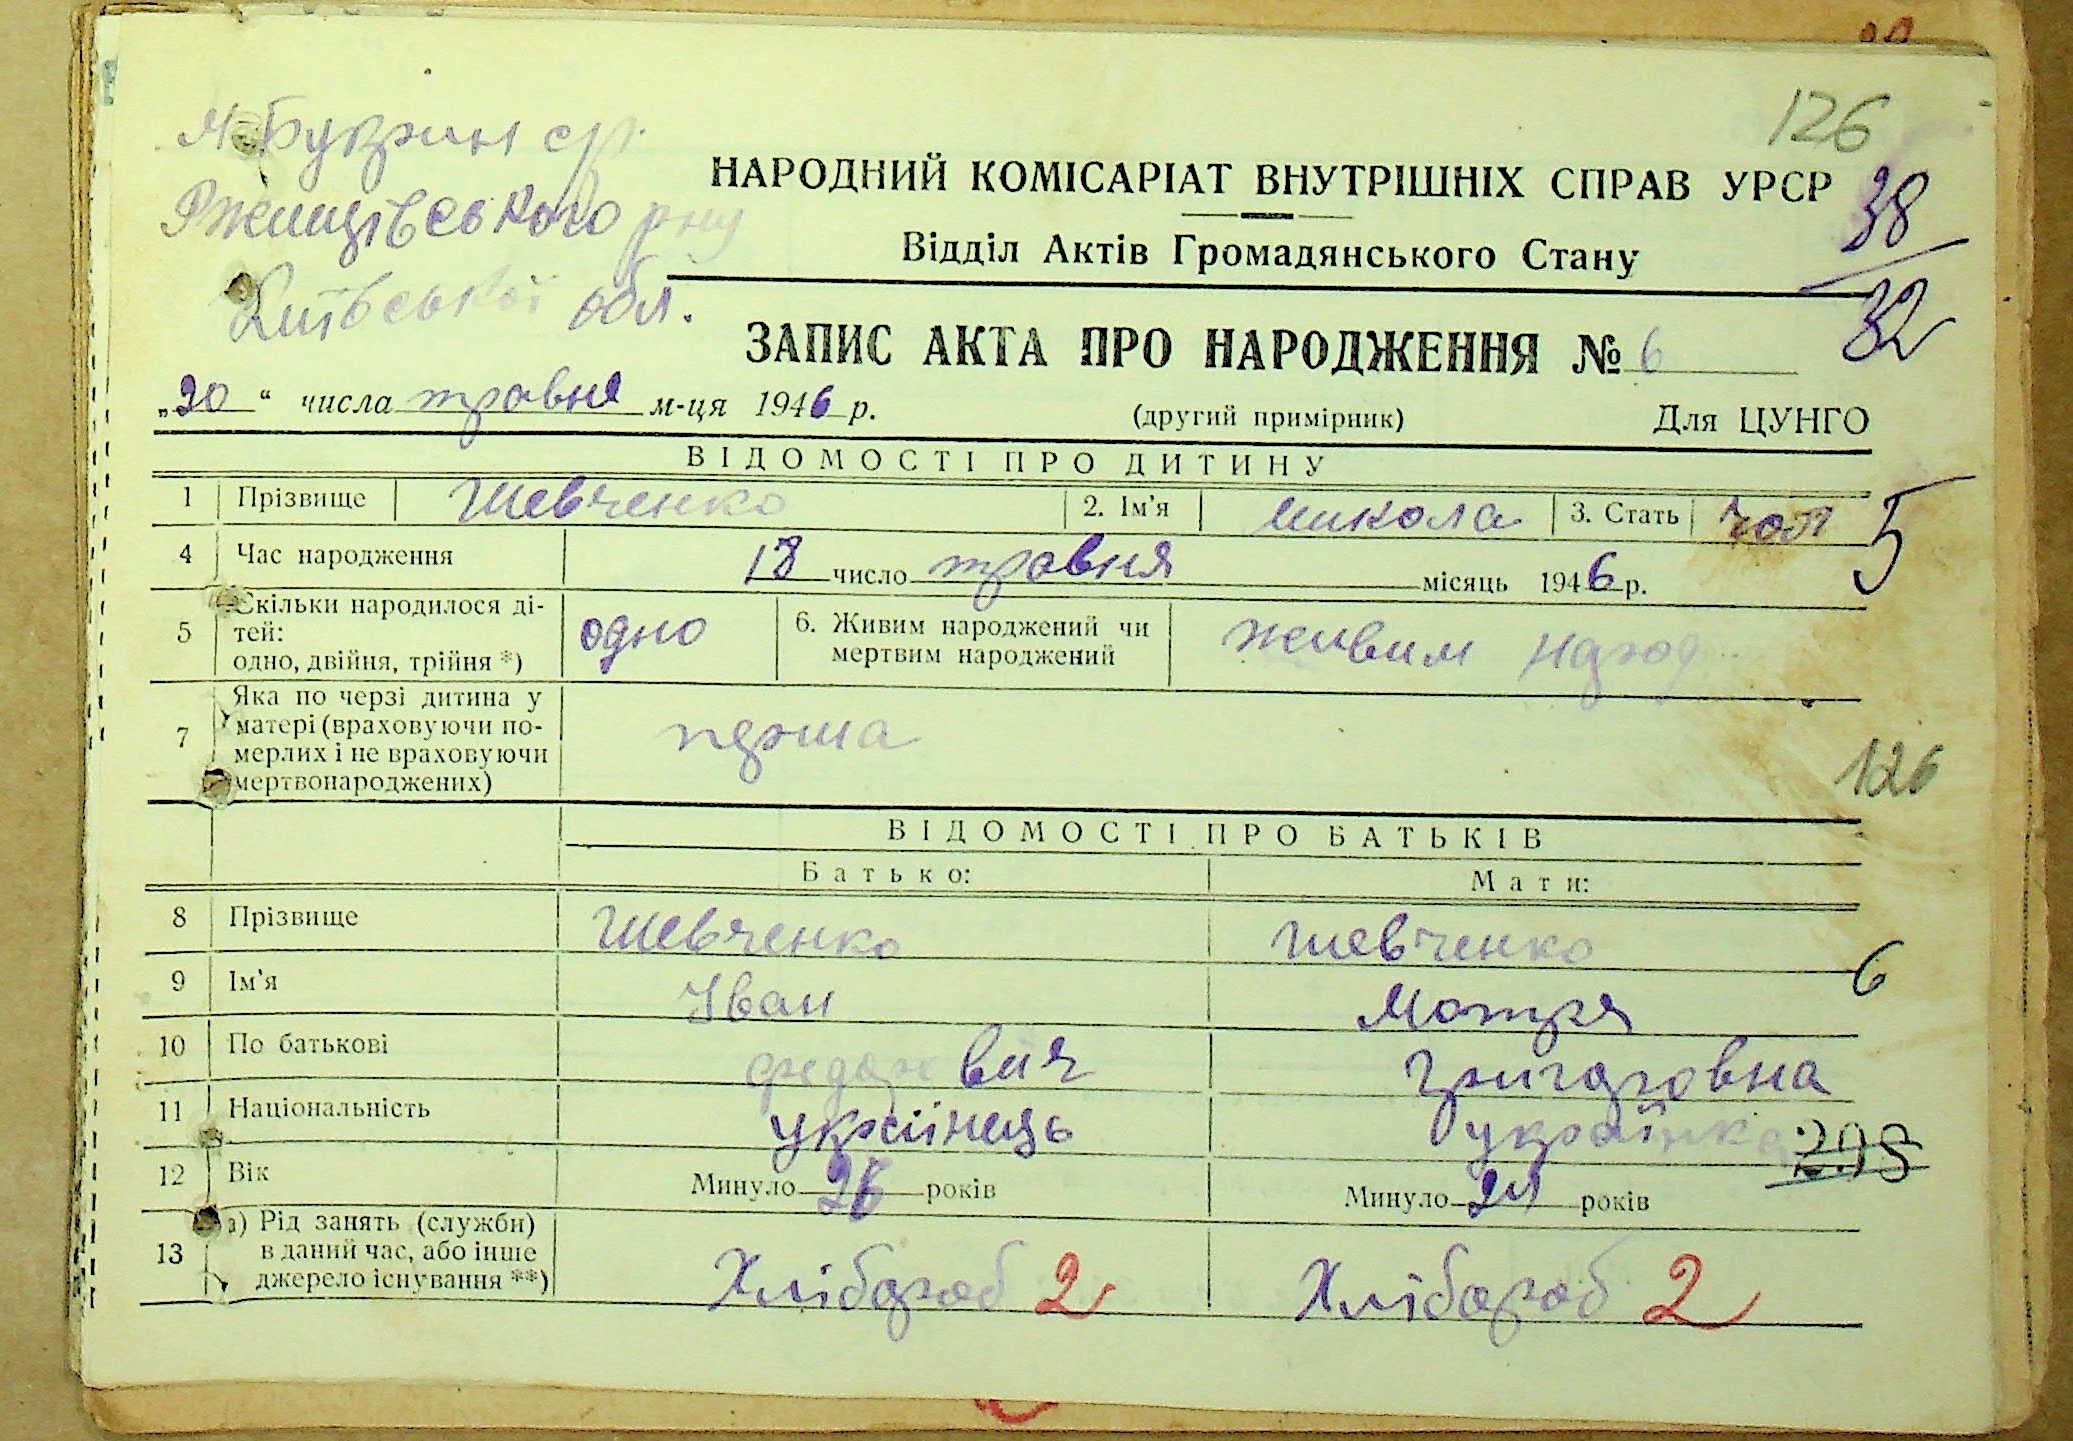 126
М. Букрин с/р.
Ржищівського р-ну
Київської обл.
НАРОДНИЙ КОМІСАРІАТ ВНУТРІШНІХ СПРАВ УРСР
38
Відділ Актів Громадянського Стану
32
ЗАПИС АКТА ПРО НАРОДЖЕННЯ № 6
„20“ числа травня м-ця 1946 р. (другий примірник) Для ЦУНГО
ВІДОМОСТІ ПРО ДИТИНУ
1 Прізвище Шевченко 2. Ім'я Микола 3. Стать чол 5
4 Час народження 18 число травня місяць 1946 р.
5 Скільки народилося ді-
тей:
одно, двійня, трійня *) одно 6. Живим народжений чи
мертвим народжений живим народ..
7 Яка по черзі дитина у
матері (враховуючи по-
мерлих і не враховуючи
мертвонароджених) перша
126
ВІДОМОСТІ ПРО БАТЬКІВ
Батько: Мати:
8 Прізвище Шевченко Шевченко
9 Ім'я Іван Мотря 6
10 По батькові Федорович Григоровна
11 Національність українець українка
12 Вік Минуло 26 років Минуло років
13 а) Рід занять (служби)
в даний час, або інше
джерело існування **) Хлібороб 2 Хлібороб 2